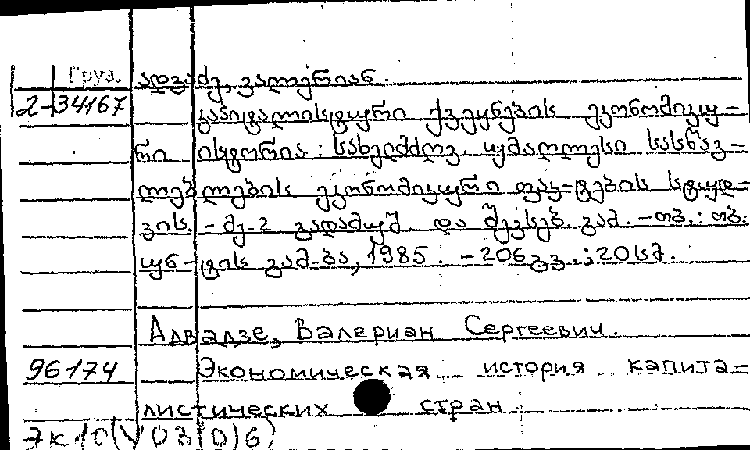 Груз. ადვაძე, ვალერიან.
2-34167 კაპიტალისტური ქვეყნების ეკონომიკუ-
რი ისტორია : სახელმძღვ. უმაღლესი სასწავ-
ლებლების ეკონომიკური ფაკ-ტების სტუდ-
ვის. - მე-2 გადამუშ. და შევსებ. გამ. - თბ. : თბ.
უნ-ტის გამ-ბა, 1985. - 206 გვ. ; 20 სმ.
Адвадзе, Валериан Сергеевич.
96174 Экономическая история капита-
листических стран.